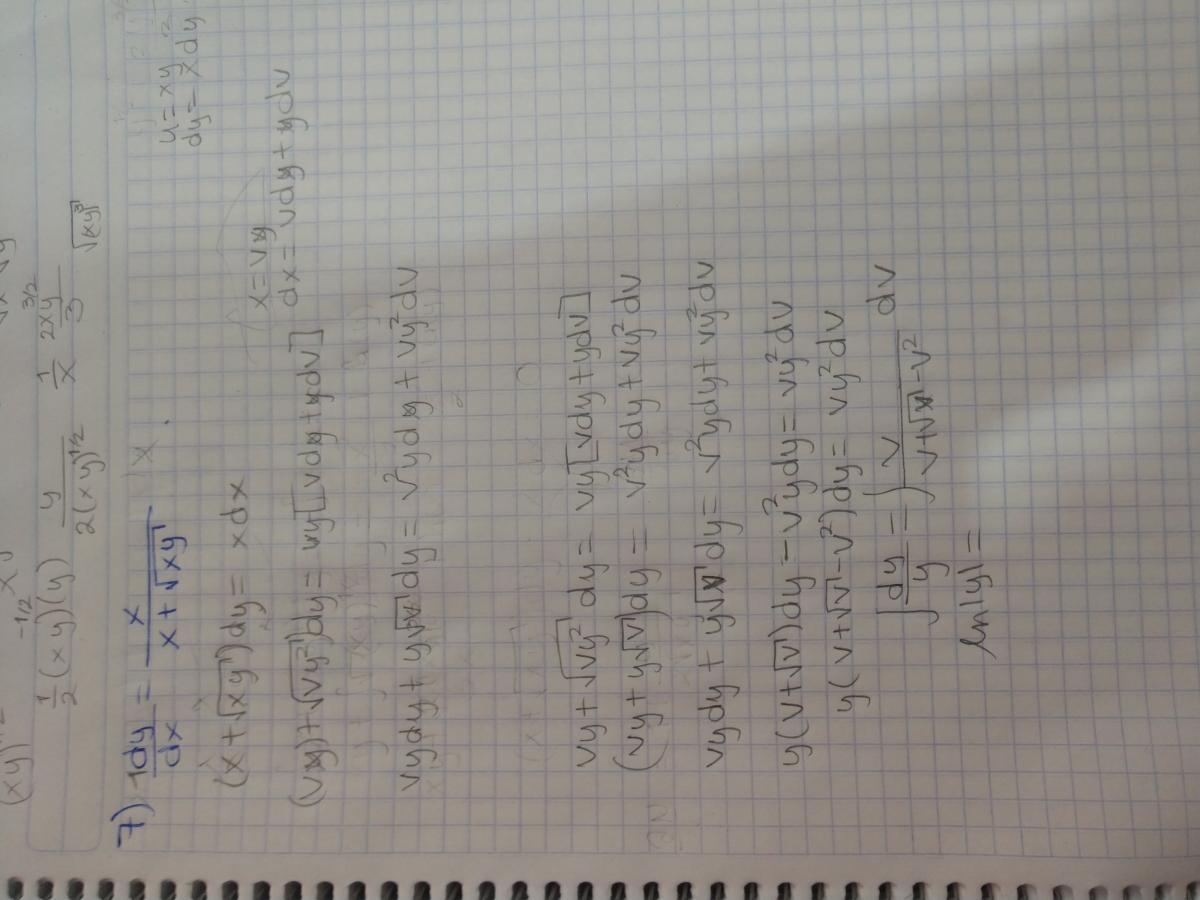 (xy)
-1/2
1/2 (xy)(y) y/2(xy)^1/2 1/x 2xy^3/2/3 √(xy)³
u = xy
dy = x dy
7) 1dy/dx = x/(x+√xy) x.
(x+√xy)dy = xdx
x = vy
dx = vdy + ydv
(vy)+√vy²)dy = vy[vdy+ydv]
vydy + y√v dy = v²ydy + vy²dv
vy+√vy² dy = vy[vdy+ydv]
(vy + y√v)dy = v²ydy+vy²dv
vydy + y√v dy = v²ydy + vy²dv
y(v+√v)dy - v²ydy = vy²dv
y(v+√v-v²)dy = vy²dv
∫dy/y = ∫v/(v+√v-v²) dv
ln|y| =